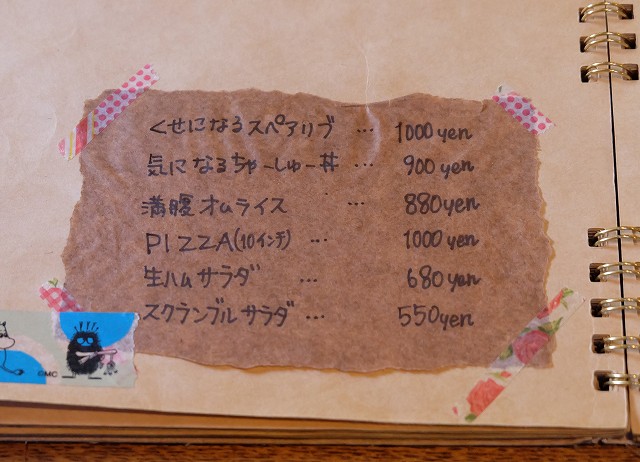 くせになるスペアリブ … 1000yen
気になるちゃーしゅー丼 … 900yen
満腹オムライス … 880yen
PIZZA(10インチ) … 1000yen
生ハムサラダ … 680yen
スクランブルサラダ … 550yen
©MC